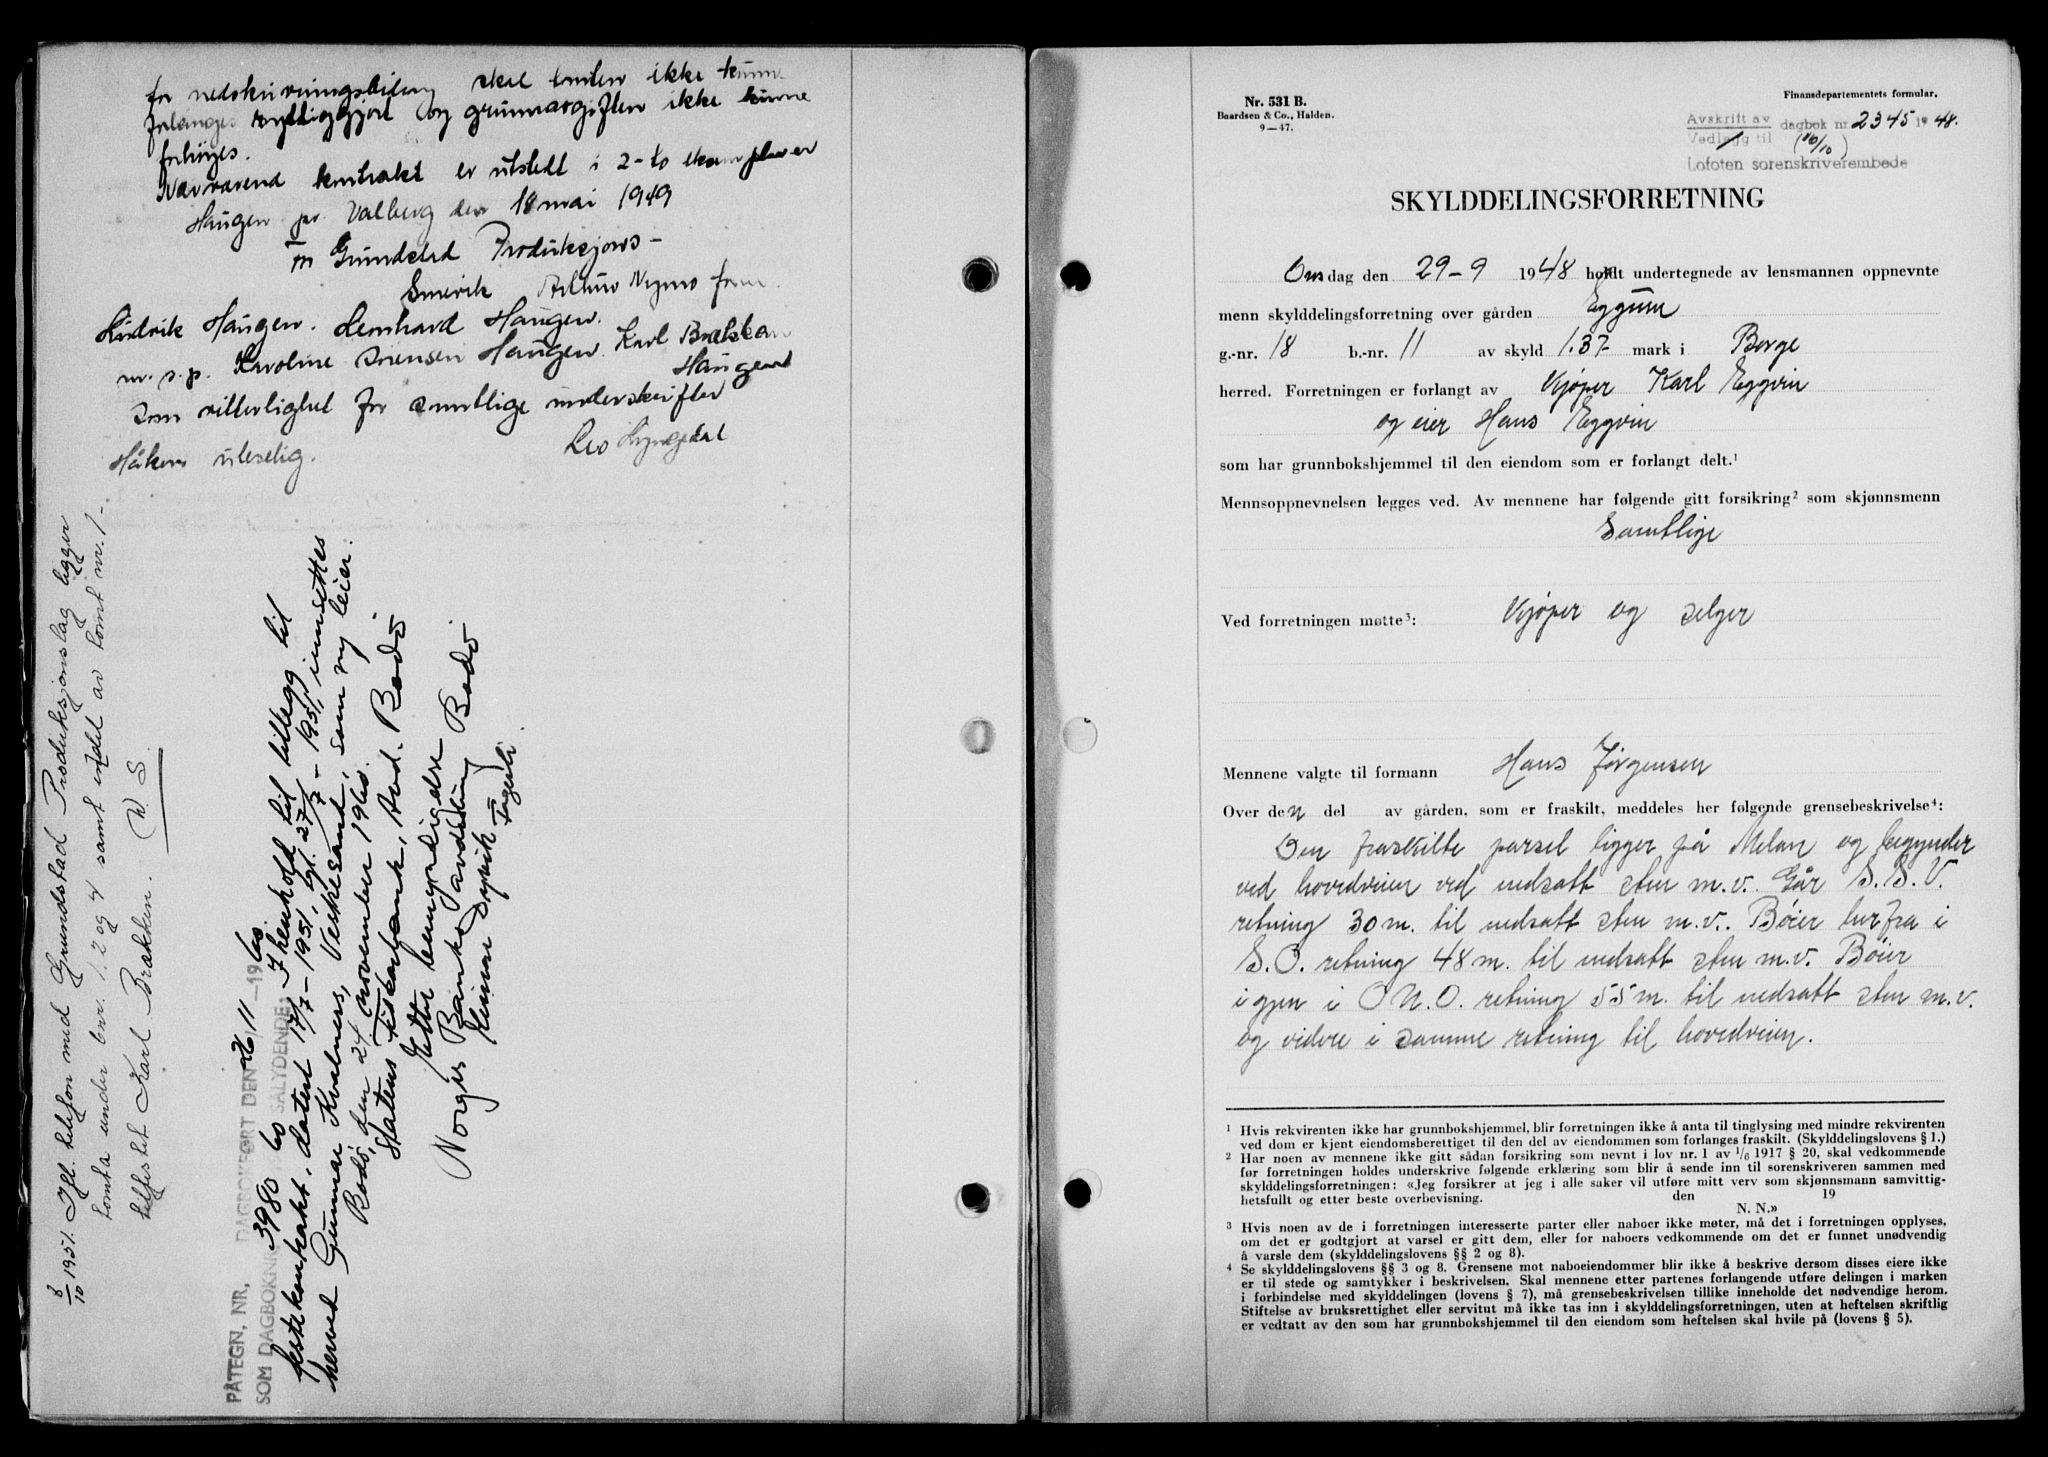 for nedskrivningsbidrag skal tomten ikke kunne
forlanges ryddiggjort og grunnavgiften ikke kunne
forhøyes.
Nærværend kontrakt er utstedt i 2-to eksemplarer
Haugen pr. Valberg den 18 mai 1949
Produksjons-
Arthur Nymo form.
Hendrik Haugen. Lernhard Haugen.
m. s. p. Karoline Sørensen Haugen. Karl Brekkan
Haugen
Som vitterlighet for samtlige underskrifter
Håkon uleselig. Leo Lyngedal
8/10 1951. Ifl. telefon med Grundstad Produksjonslag ligger
tomta under bnr. 1. 2 og 4 samt endel av tomt nr. 1-
tilfestet Karl Brækken. W. S.
PÅTEGN. NR. DAGBOKFØRT DEN 26/11 -1960
SOM DAGBOKNR. 3980 60 SÅLYDENDE: I henhold til tillegg til
festekontrakt, datert 17/7-1951, gl. 27/7-1951, innsettes
herved Gunnar Kvalnes, Veskesand, som ny leier.
Bodø, den 24 november 1960.
Statens Fiskarbank, Avd. Bodø
Etter bemyndigelse
Norges Bank avdeling Bodø
Einar Dypvik Fagerli
Nr. 531 B.
Baardsen & Co., Halden.
9—47.
Finansdepartementets formular.
Avskrift av dagbok nr. 2345 1948.
Vedlegg til
Lofoten sorenskriverembede
SKYLDDELINGSFORRETNING
Onsdag den 29-9 1948 holdt undertegnede av lensmannen oppnevnte
menn skylddelingsforretning over gården Eggum
g.-nr. 18 b.-nr. 11 av skyld 1.37 mark i Borge
herred. Forretningen er forlangt av Kjøper Karl Eggvin
og eier Hans Eggvin
som har grunnbokshjemmel til den eiendom som er forlangt delt.¹
Mennsoppnevnelsen legges ved. Av mennene har følgende gitt forsikring² som skjønnsmenn
Samtlige
Ved forretningen møtte³: Kjøper og selger
Mennene valgte til formann Hans Jørgensen
Over den del av gården, som er fraskilt, meddeles her følgende grensebeskrivelse⁴:
Den fraskilte parsel ligger på Melan og begynder
ved hovedveien ved nedsatt sten m.v. Går S.S.V.
retning 30 m. til nedsatt sten m.v. Bøier herfra i
S.O. retning 48 m. til nedsatt sten m.v. Bøier
igjen i O N.O. retning 55 m. til nedsatt sten m.v.
og videre i samme retning til hovedveien.
¹ Hvis rekvirenten ikke har grunnbokshjemmel, blir forretningen ikke å anta til tinglysing med mindre rekvirenten
ved dom er kjent eiendomsberettiget til den del av eiendommen som forlanges fraskilt. (Skylddelingslovens § 1.)
² Har noen av mennene ikke gitt sådan forsikring som nevnt i lov nr. 1 av 1/6 1917 § 20, skal vedkommende
før forretningen holdes underskrive følgende erklæring som blir å sende inn til sorenskriveren sammen med
skylddelingsforretningen: «Jeg forsikrer at jeg i alle saker vil utføre mitt verv som skjønnsmann samvittig-
hetsfullt og etter beste overbevisning. den 19
N. N.»
³ Hvis noen av de i forretningen interesserte parter eller naboer ikke møter, må det i forretningen opplyses,
om det er godtgjort at varsel er gitt dem, eller for naboers vedkommende om det er funnet unødvendig
å varsle dem (skylddelingslovens §§ 2 og 8).
⁴ Se skylddelingslovens §§ 3 og 8. Grensene mot naboeiendommer blir ikke å beskrive dersom disses eiere ikke
er til stede og samtykker i beskrivelsen. Skal mennene etter partenes forlangende utføre delingen i marken
i forbindelse med skylddelingen (lovens § 7), må grensebeskrivelsen tillike inneholde det nødvendige herom.
Stiftelse av bruksrettighet eller servitut må ikke tas inn i skylddelingsforretningen, uten at heftelsen skriftlig
er vedtatt av den som har grunnbokshjemmel til den eiendom som heftelsen skal hvile på (lovens § 5).